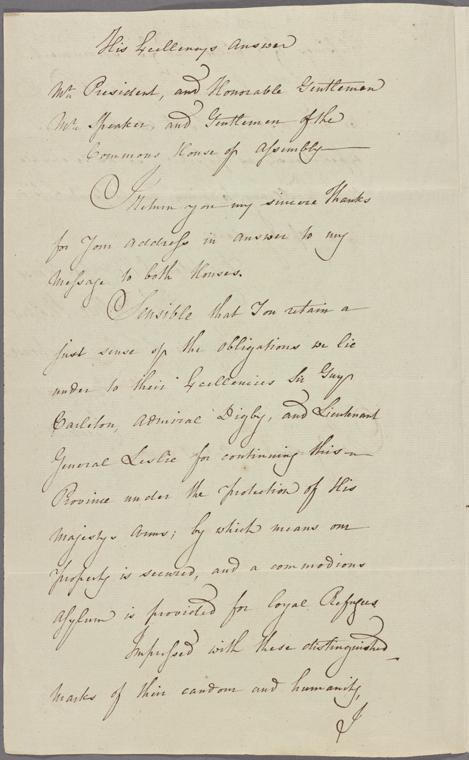 His Excellencys Answer
Mr. President, and Honorable Gentlemen
Mr. Speaker, and Gentlemen of the
Commons House of Assembly
I Return you my sincere Thanks
for Your Address in answer to my
Message to both Houses.
Sensible that You retain a
just sense of the obligations we lie
under to their Excellencies Sir Guy
Carleton, Admiral Digby, and Lieutenant
General Leslie for continuing this
Province under the protection of His
Majestys Arms; by which means our
property is secured, and a commodious
Asylum is provided for loyal Refugees
Impressed with these distinguished
Marks of their candour and humanity,
I